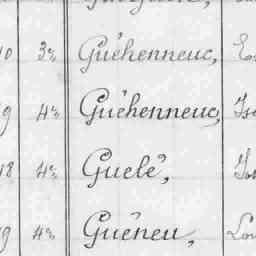 10 3e Guéhenneuc,
9 4e Guéhenneuc,
18 4e Guelé,
9 4e Guéneu,